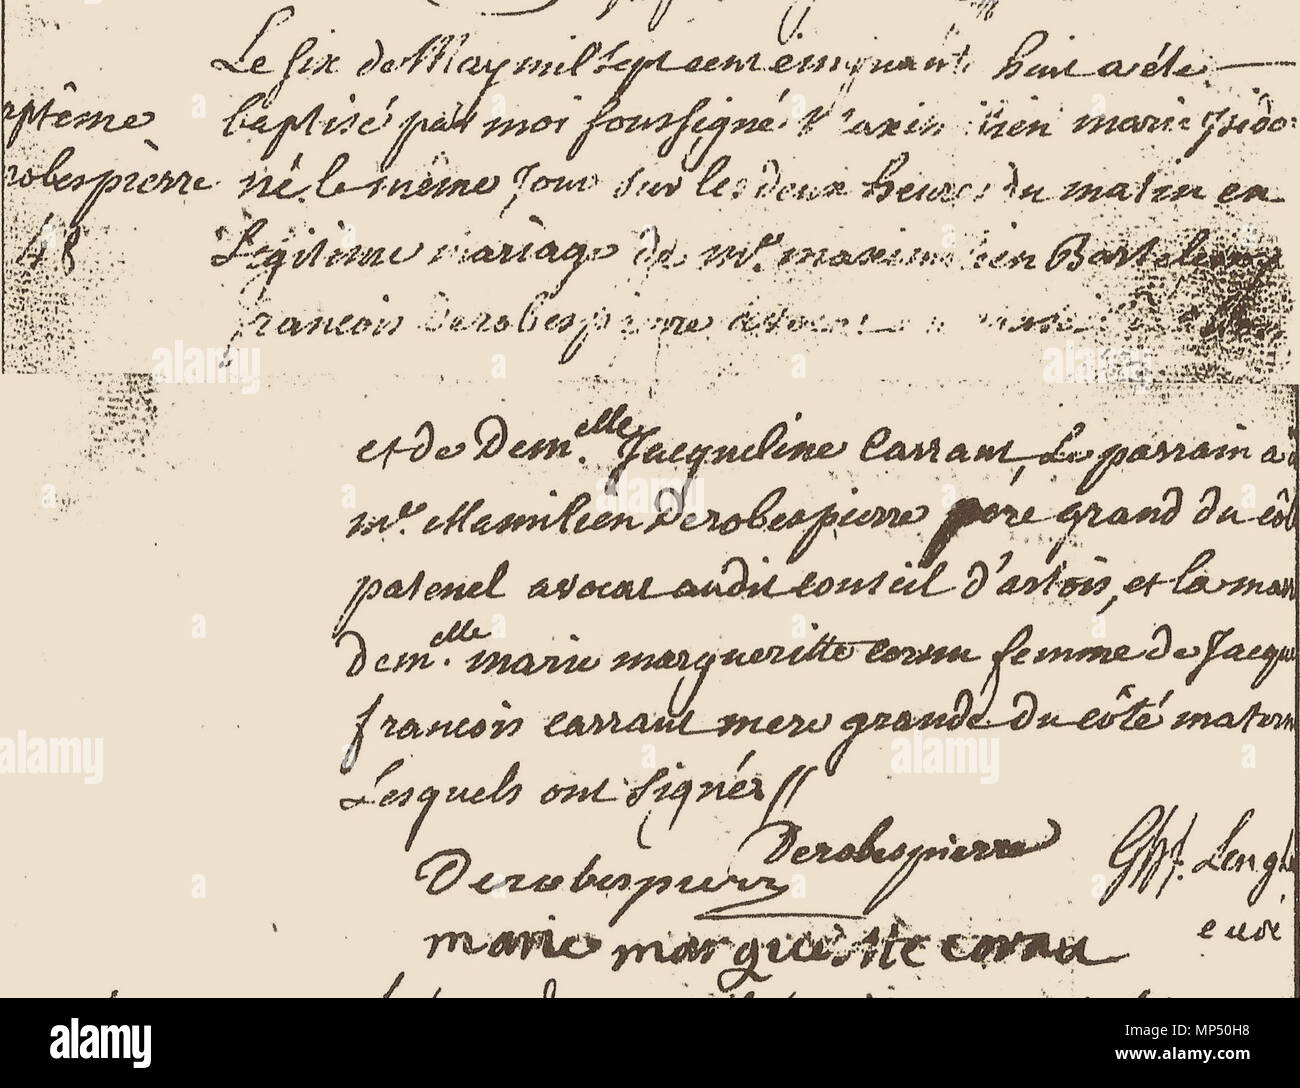 Le six de May mil sept cent cinquante huit a été
baptisé par moi soussigné Maximilien marie Isido
né le même Jour sur les deux heures du matin en
Légitime mariage de mr. maximilien Bartelemy
francois Derobespierre
ptême
robespièrre
48
et de Demelle. Jacqueline Carraut, Le parrain a
mr. Mamilien Derobespierre pere grand du côt
patenel avocat audit conseil d'artois, et la mar
demelle. marie margueritte cornu femme de Jacque
françois carraut mere grande du côté matern
Lesquels ont signér //
Derobespierre
Derobespierre
marie margueritte cornu
Lengle
curé
alamy
www.alamy.com
Image ID: MP50H8